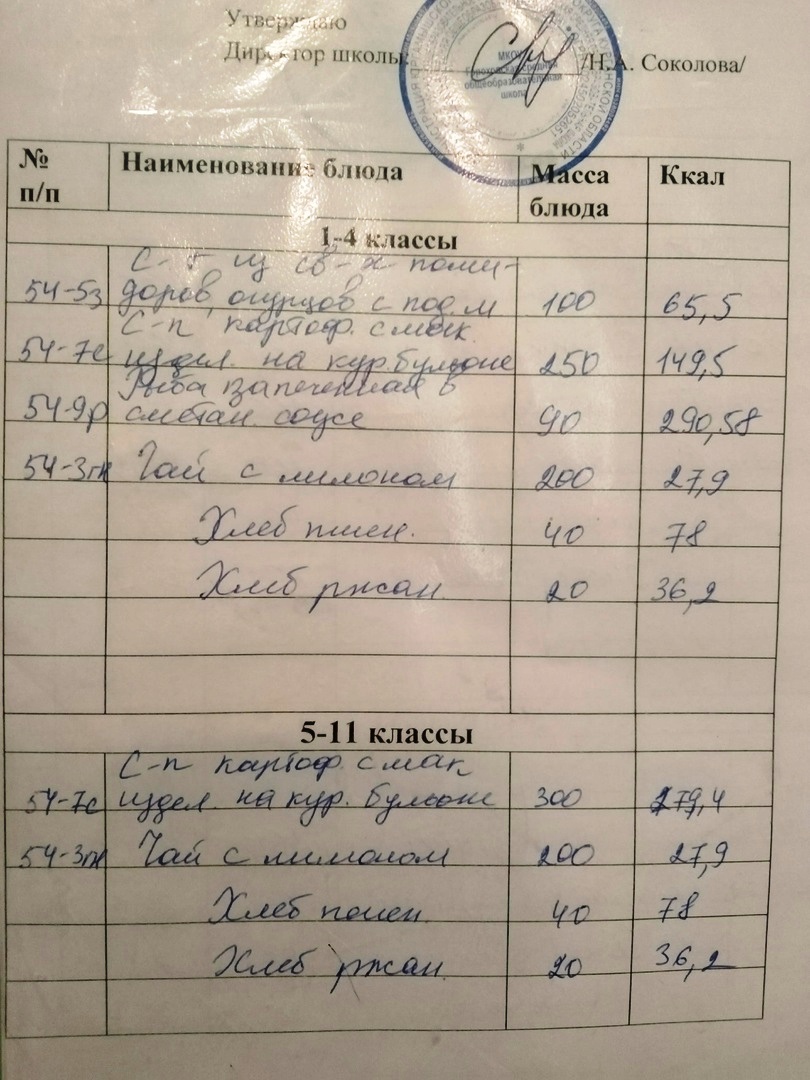 Утверждаю
Директор школы: /Н.А. Соколова/
МКОУ
средняя
общеобразовательная
школа
№ п/п Наименование блюда Масса блюда Ккал
1-4 классы
С-т из св-х поми-
54-5з доров, огурцов с под.м 100 65,5
С-п картоф. с мак.
54-7с издел. на кур. бульоне 250 149,5
Рыба запеченная в
54-9р сметан. соусе 90 290,58
54-3гн Чай с лимоном 200 27,9
Хлеб пшен. 40 78
Хлеб ржан. 20 36,2
5-11 классы
С-п картоф. с мак
54-7с издел. на кур. бульоне 300 179,4
54-3гн Чай с лимоном 200 27,9
Хлеб пшен. 40 78
Хлеб ржан. 20 36,2